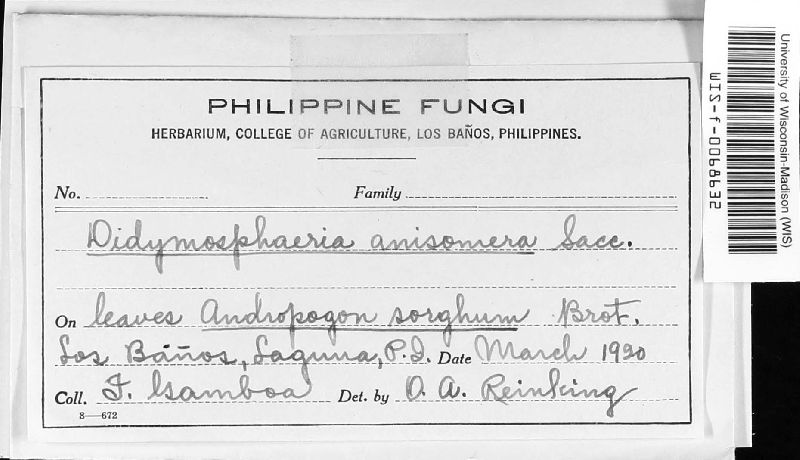 PHILIPPINE FUNGI
HERBARIUM, COLLEGE OF AGRICULTURE, LOS BAÑOS, PHILIPPINES.
No. Family
Didymosphaeria anisomera Sacc.
On leaves Andropogon sorghum Brot.
Los Báños, Laguna, P.I. Date March 1920
Coll. F. Gamboa Det. by O. A. Reinking
8—672
University of Wisconsin-Madison (WIS)
WIS-f-0068632